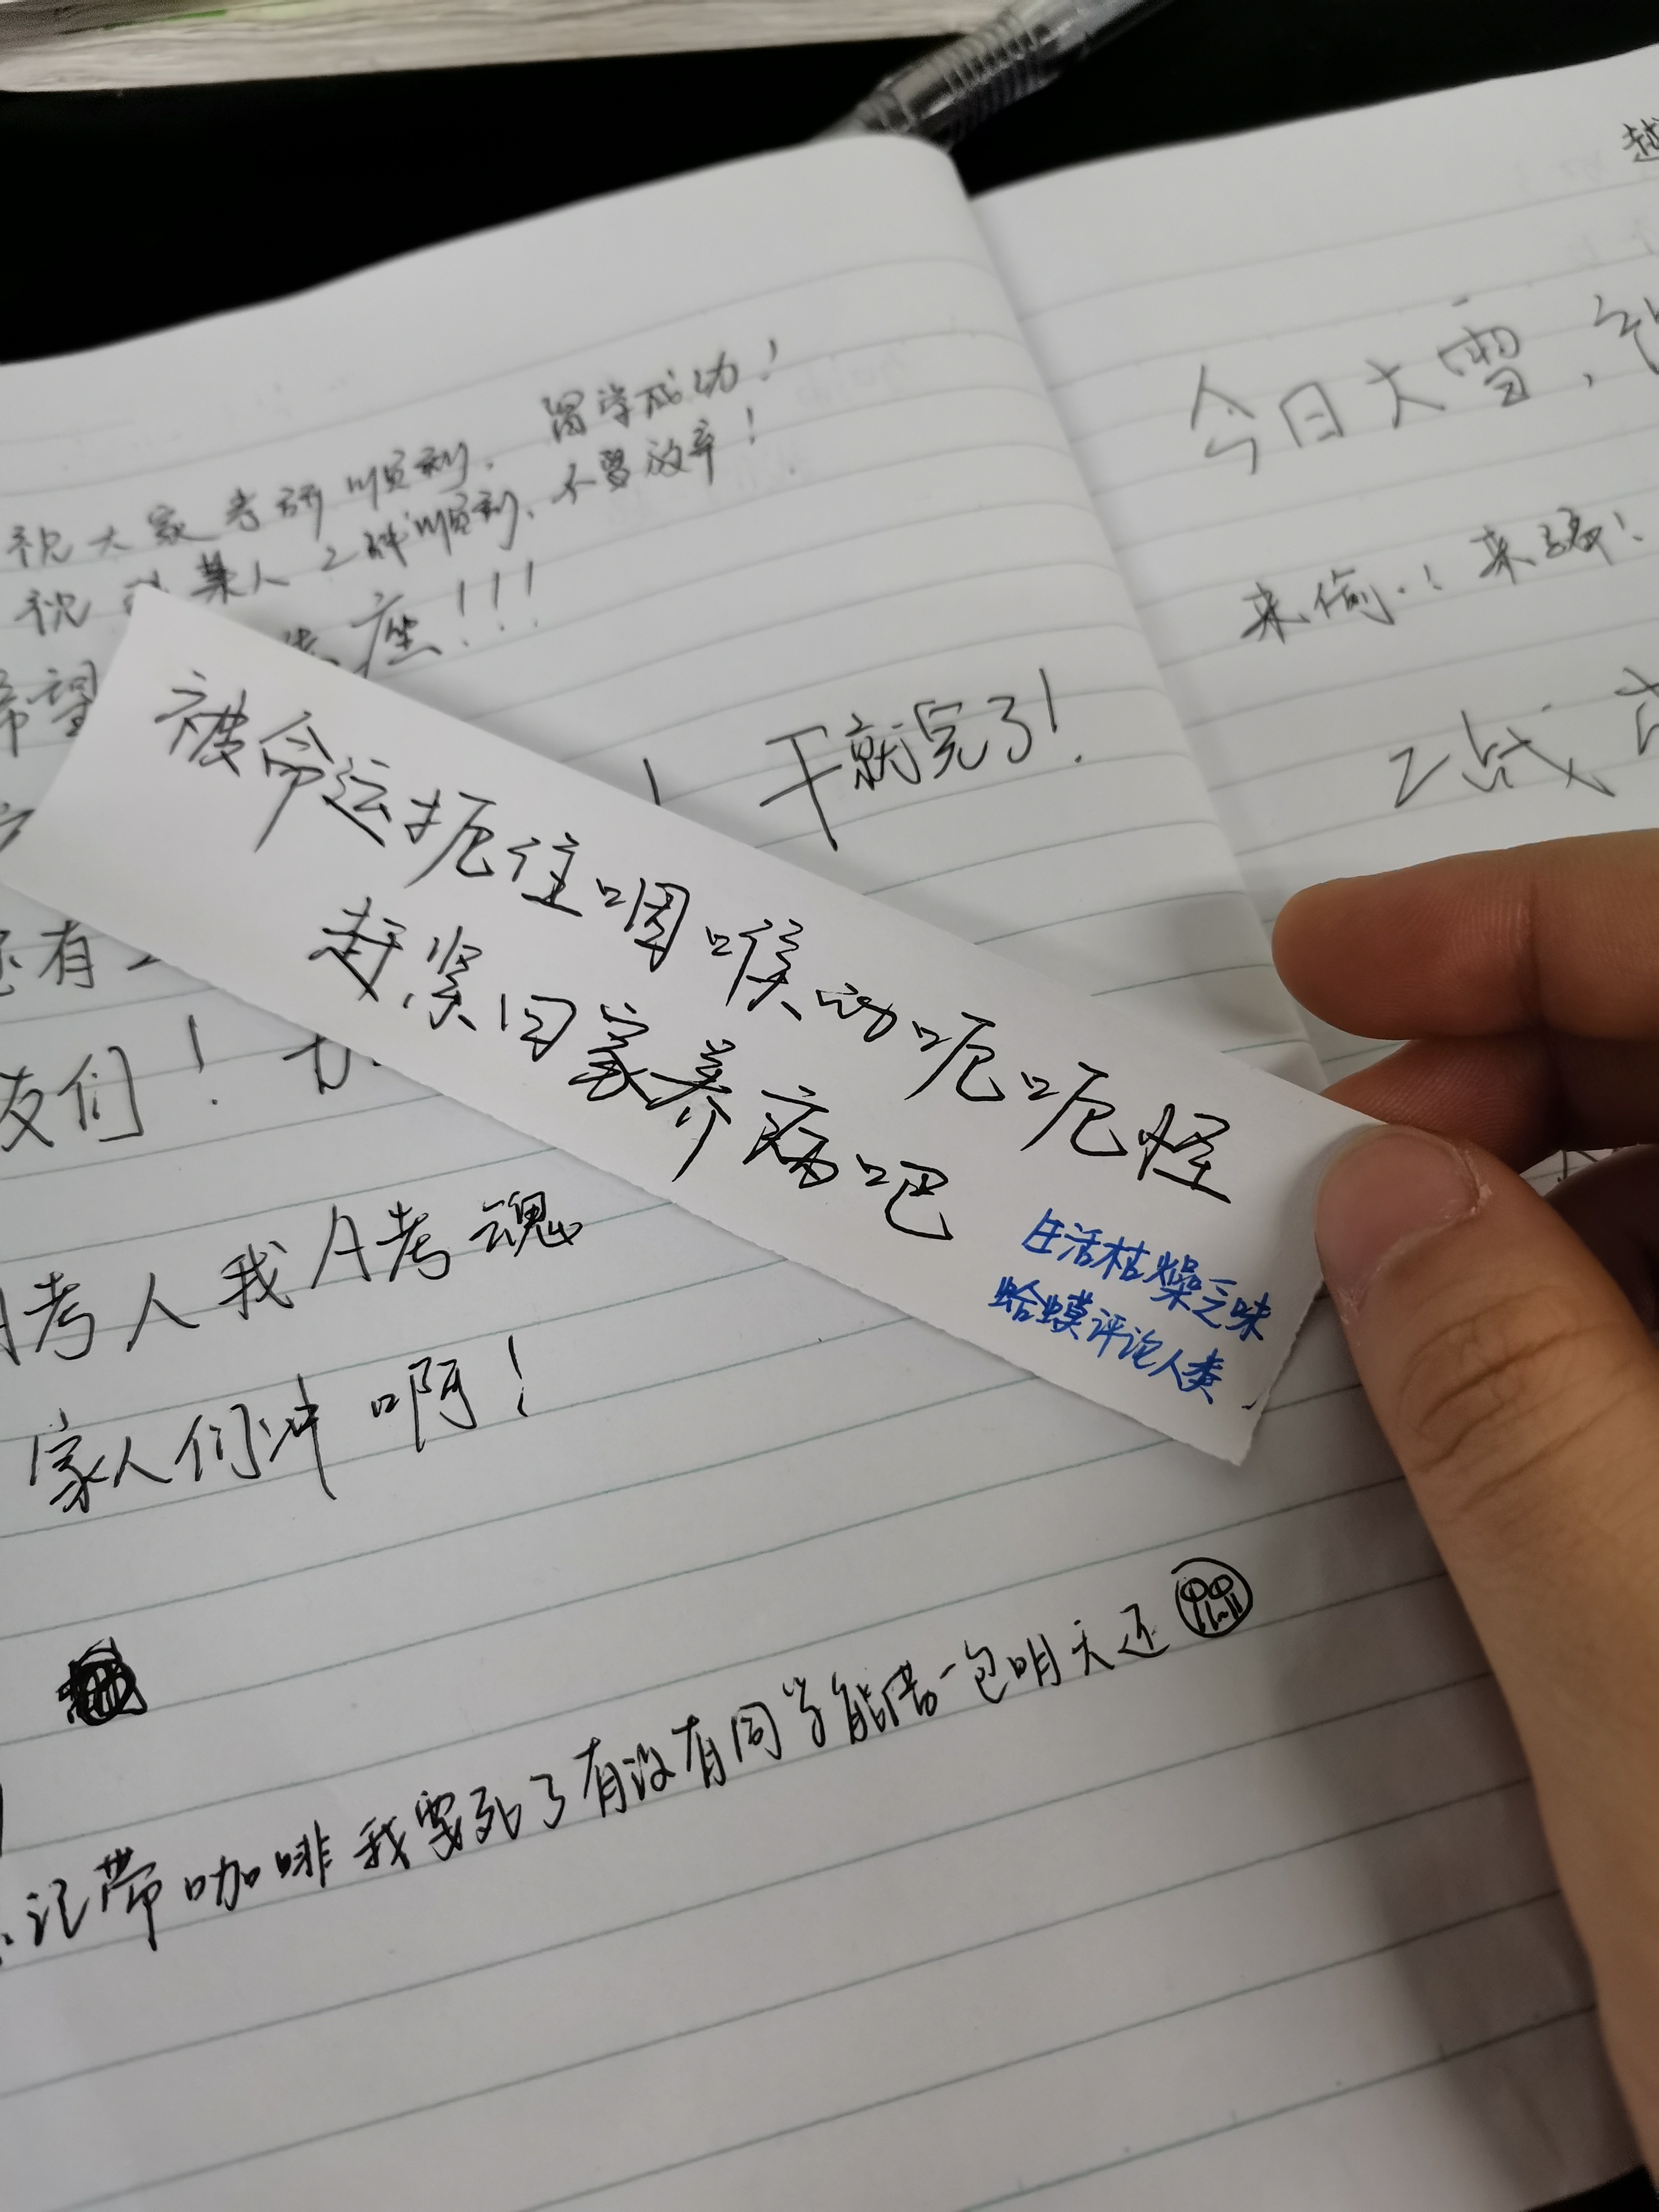 祝大家考研顺利、留学成功！
祝某人二战顺利、不要放弃！
希望
座！！！
干就完了！
被命运扼住咽喉的呃呃怪
赶紧回家养病吧
生活枯燥乏味
蛤蟆评论人类
还有
友们！
考人我A考魂
家人们冲啊！
记带咖啡我要死了有没有同学能借一包明天还
越
今日大雪，
来偷！来骗！
二战